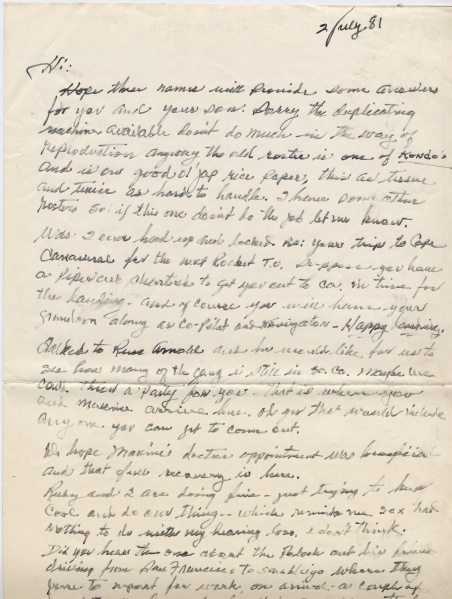 2 July 81
Hi:
Hope these names will provide some answers
for you and your son. Sorry the duplicating
machines available don't do much in the way of
reproduction anyway the old roster is one of Kondo's
and is on good ol Jap rice paper, thin as tissue
and twice as hard to handle. I have some other
rosters so if this one doesn't do the job let me know.
I ever Re: your trip to Cape
Canaveral for the next Rocket T.O. you have
a Piper cub to get you out to Ca. in time for
the landing. And of course you will have your
grandson along as Co-Pilot and Navigator - Happy Landing.
Talked to Russ Arnold and he would like for us to
see how many of the gang is still in So Co. Maybe we
could throw a Party for you. That is when you
and Maxine arrive here. Oh yes that would include
any one you can get to come out.
We hope Maxine's doctor appointment was beneficial
and that full recovery is here.
Ruby and I are doing fine - just trying to keep
cool and do our thing - which reminds me sex had
nothing to do with my hearing loss, I don't think.
Did you hear the one about the Polock and his friend
driving from San Francisco to San Diego where they
were to report for work, on arrival - a couple of